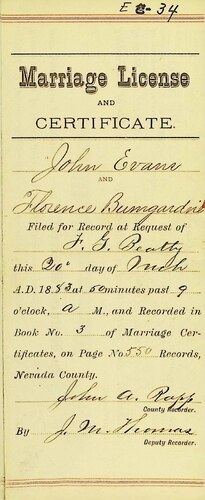 E C-34
Marriage License
AND
CERTIFICATE.
John Evans
AND
Florence Bumgardner
Filed for Record at Request of
F. G. Beatty
this 20" day of Mch
A.D. 1883 at 50 minutes past 9
o'clock, a M., and Recorded in
Book No. 3 of Marriage Cer-
tificates, on Page No 550 Records,
Nevada County.
John A. Rapp
County Recorder.
By J. M. Thomas
Deputy Recorder.